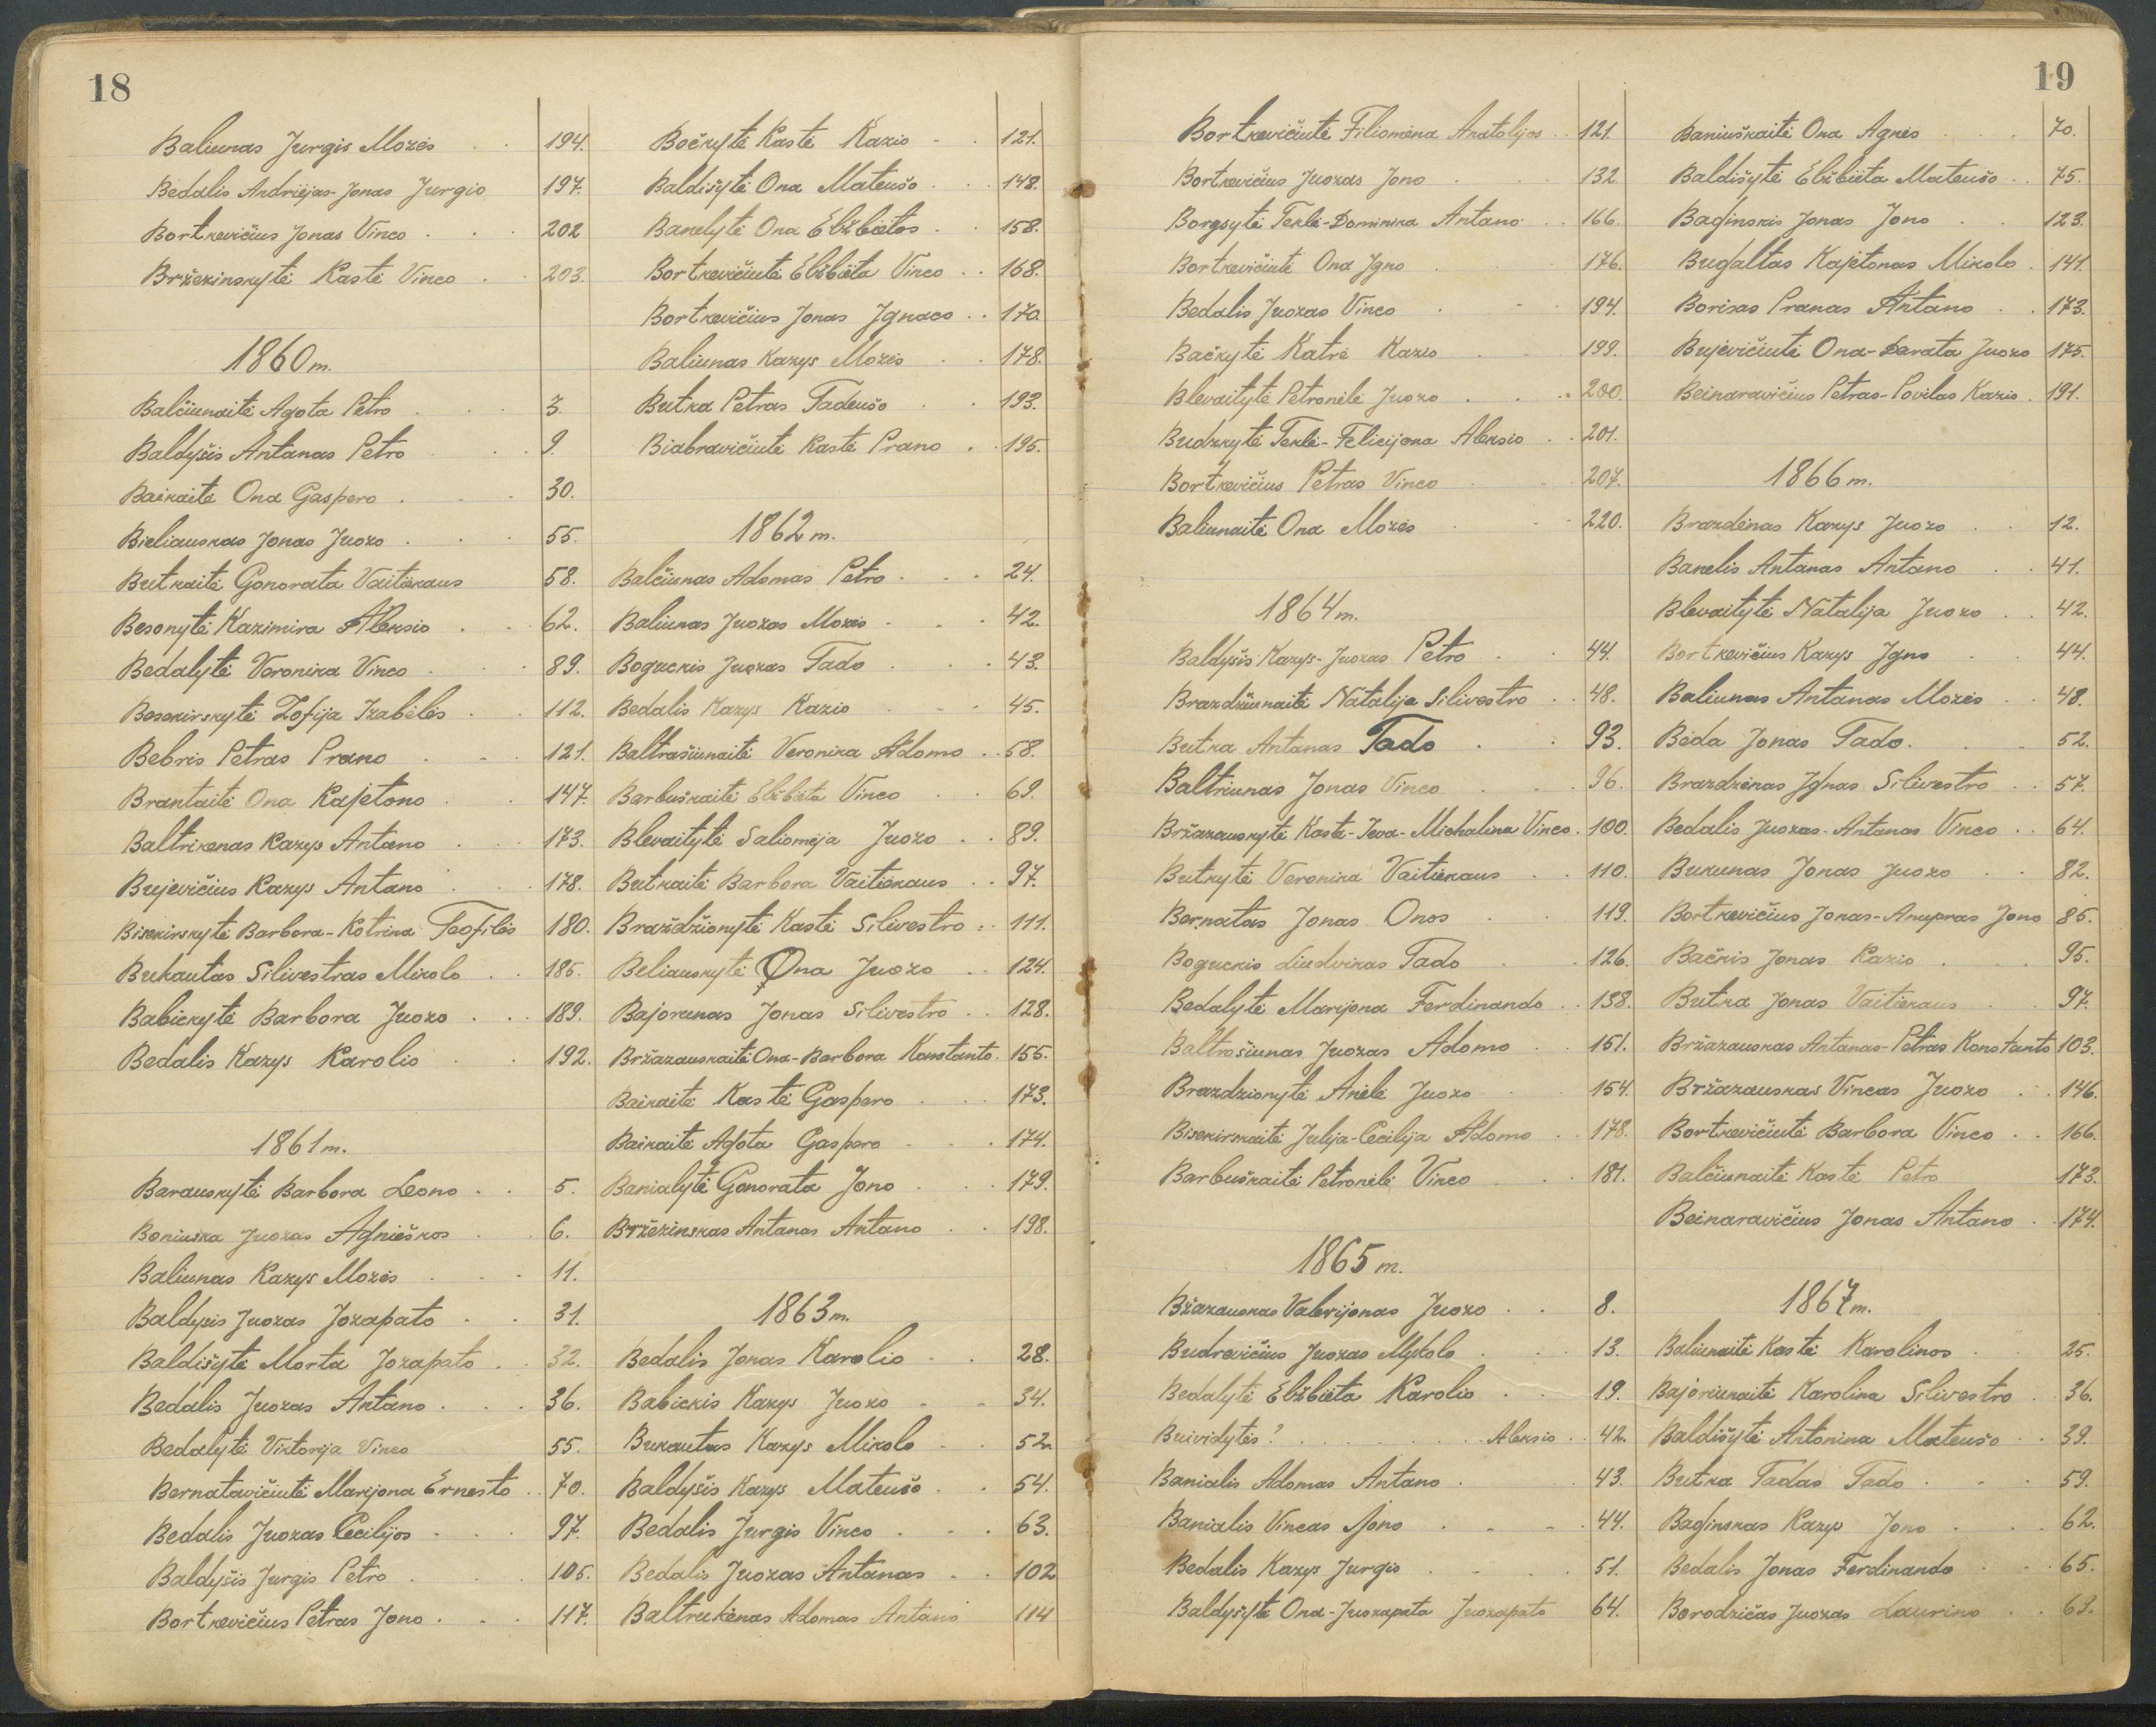 18
Baliunas Jurgis Mozės 194.
Bedalis Andriejas-Jonas Jurgio 197.
Bortkevičius Jonas Vinco 202
Bržezinskytė Kastė Vinco 203.
1860 m.
Balčiunaitė Agota Petro 3.
Baldyšis Antanas Petro 9.
Baikaitė Ona Gaspero 30.
Bieliauskas Jonas Juozo 55.
Butkaitė Gonorata Vaitiekaus 58.
Besonytė Kazimira Aleksio 62.
Bedalytė Veronika Vinco 89.
Besekirskytė Zofija Izabėlės 112.
Bebris Petras Prano 121.
Brantaitė Ona Kajetono 147.
Baltrikenas Kazys Antano 173.
Bujevičius Kazys Antano 178.
Bisekirskytė Barbora-Kotrina Teofilės 180.
Bukautas Silivestras Mikolo 185.
Babickytė Barbora Juozo 189.
Bedalis Kazys Karolio 192.
1861 m.
Barauskytė Barbora Leono 5.
Boniuška Juozas Agnieškos 6.
Baliunas Kazys Mozės 11.
Baldysis Juozas Jozapato 31.
Baldišytė Morta Jozapato 32.
Bedalis Juozas Antano 36.
Bedalytė Viktorija Vinco 55.
Bernatavičiutė Marijona Ernesto 70.
Bedalis Juozas Cecilijos 97.
Baldyšis Jurgis Petro 105.
Bortkevičius Petras Jono 117.
Bočkytė Kastė Kazio 121.
Baldišytė Ona Mateušo 148.
Banelytė Ona Elžbietos 158.
Bortkevičiutė Elžbieta Vinco 168.
Bortkevičius Jonas Ignaco 170.
Baliunas Kazys Mozės 178.
Butka Petras Tadeušo 193.
Biabravičiutė Kastė Prano 195.
1862 m.
Balčiunas Adomas Petro 24.
Baliunas Juozas Mozės 42.
Boguckis Juozas Tado 43.
Bedalis Kazys Kazio 45.
Baltrašiunaitė Veronika Adomo 58.
Barbuškaitė Elžbieta Vinco 69.
Blevaitytė Saliomėja Juozo 89.
Butkaitė Barbora Vaitiekaus 97.
Braždžionytė Kastė Silivestro 111.
Beliauskytė Ona Juozo 124.
Bajorunas Jonas Silivestro 128.
Bržazauskaitė Ona-Barbora Konstanto 155.
Baikaitė Kastė Gaspero 173.
Baikaitė Agota Gaspero 174.
Banialytė Gonorata Jono 179.
Bržezinskas Antanas Antano 198.
1863 m.
Bedalis Jonas Karolio 28.
Babickis Kazys Juozo 34.
Bukautas Kazys Mikolo 52.
Baldyšis Kazys Mateušo 54.
Bedalis Jurgis Vinco 63.
Bedalis Juozas Antanas 102
Baltrukėnas Adomas Antano 114
19
Bortkevičiutė Filiomena Anatolijos 121.
Bortkevičius Juozas Jono 132.
Borgsytė Teklė-Dominika Antano 166.
Bortkevičiutė Ona Igno 176.
Bedalis Juozas Vinco 194.
Bačkytė Katrė Kazio 199.
Blevaitytė Petronėlė Juozo 200.
Budzkytė Teklė-Felicijona Aleksio 201.
Bortkevičius Petras Vinco 207.
Baliunaitė Ona Mozės 220.
1864 m.
Baldyšis Kazys-Juozas Petro 44.
Brazdžiunaitė Natalija Silivestro 48.
Butka Antanas Tado 93.
Baltriunas Jonas Vinco 96.
Bržazauskytė Kastė-Ieva-Michalina Vinco 100.
Butkytė Veronika Vaitiekaus 110.
Bernatas Jonas Onos 119.
Boguckis Liudvikas Tado 126.
Bedalytė Marijona Ferdinando 138.
Baltrošiunas Juozas Adomo 151.
Brazdzionytė Anėlė Juozo 154.
Bisekirskaitė Julija-Cecilija Adomo 178.
Barbuškaitė Petronėlė Vinco 181.
1865 m.
Bžazauskas Valerijonas Juozo 8.
Budrevičius Juozas Mykolo 13.
Bedalytė Elžbieta Karolio 19.
Buividytės? Aleksio 42.
Banialis Adomas Antano 43.
Banialis Vincas Jono 44.
Bedalis Kazys Jurgio 51.
Baldyšytė Ona-Juozapata Juozapato 64.
Baniuškaitė Ona Agnės 70.
Baldišytė Elžbieta Mateušo 75.
Baginskis Jonas Jono 123.
Bugaltas Kajetonas Mikolo 141.
Borisas Pranas Antano 173.
Bujevičiutė Ona-Darata Juozo 175.
Beinaravičius Petras-Povilas Kazio 191.
1866 m.
Brazdėnas Kazys Juozo 12.
Banelis Antanas Antano 41.
Blevaitytė Natalija Juozo 42.
Bortkevičius Kazys Igno 44.
Baliunas Antanas Mozės 48.
Bėda Jonas Tado 52.
Brazdzėnas Ignas Silivestro 57.
Bedalis Juozas-Antanas Vinco 64.
Bukunas Jonas Juozo 82.
Bortkevičius Jonas-Anupras Jono 85.
Bačkis Jonas Kazio 95.
Butka Jonas Vaitiekaus 97.
Bržazauskas Antanas-Petras Konstanto 103.
Bržazauskas Vincas Juozo 146.
Bortkevičiutė Barbora Vinco 166.
Balčiunaitė Kastė Petro 173.
Beinaravičius Jonas Antano 174.
1867 m.
Baliunaitė Kastė Karolinos 25.
Bajoriunaitė Karolina Silivestro 36.
Baldišytė Antonina Mateušo 39.
Butka Tadas Tado 59.
Baginskas Kazys Jono 62.
Bedalis Jonas Ferdinando 65.
Borodzičas Juozas Laurino 69.